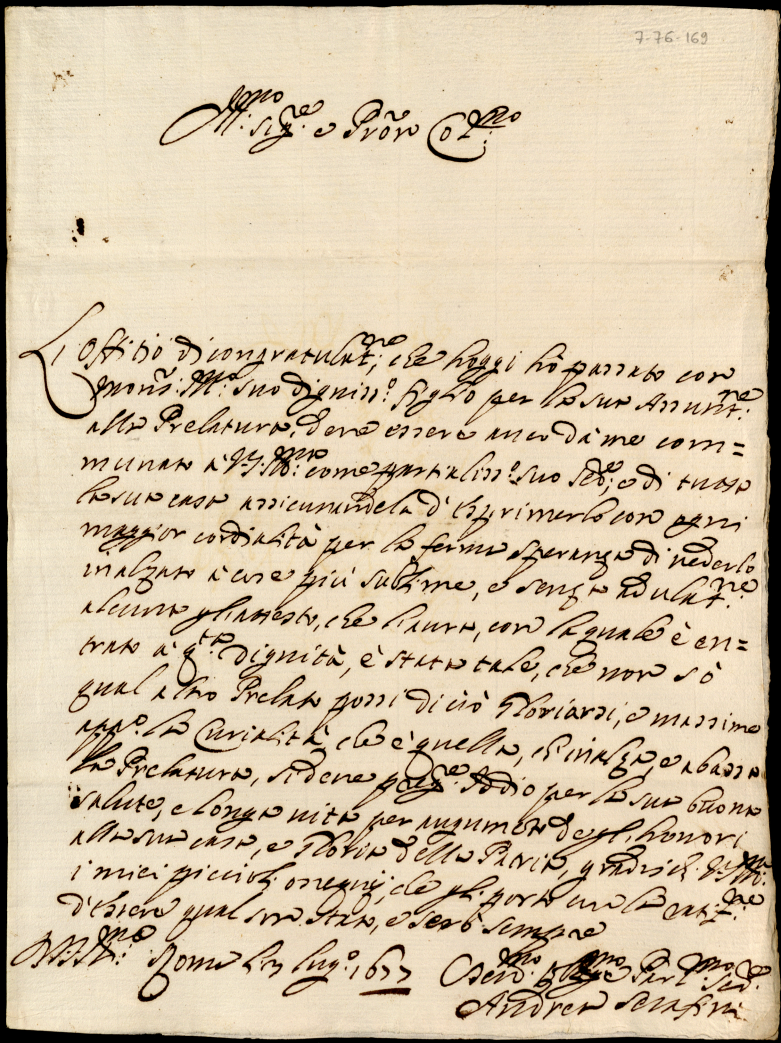 7-76-169
Ill.mo Sig.re e Pròn Col.mo
L'offitio di congratulat.ne, che hoggi hò passato con
Mons.r Ill.mo suo digniss.o figlio per la sua Assunt.ne
alla Prelatura, deve essere anco dà me com=
munato à V.S. Ill.ma come partialiss.o suo Se.re, e di tutta
la sua casa assicurandola d'esprimerlo con ogni
maggior cordialità per la ferma speranza di vederlo
inalzato à cose più sublime, e senza adulat.ne
alcuna gli attesto, che l'aura, con la quale è en=
trato à q.ta dignità, è stata tale, che non sò
qual altro Prelato possi di ciò Gloriarsi, e massime
app.o la Curialità, che è quella, ch'inalza, e abassa
la Prelatura, si deve preg.re Iddio per la sua buona
salute, e longa vita per augumento degli honori
alla sua casa, e Gloria della Patria, gradisca V.S. Ill.ma
i miei piccioli ossequij, che gli porto con la
d'essere qual son stato, e serò sempre
D V.S. Ill.ma Roma li 3 lug.o 1677
Dev.mo Obl.mo Part.mo Ser.
Andrea Serafini